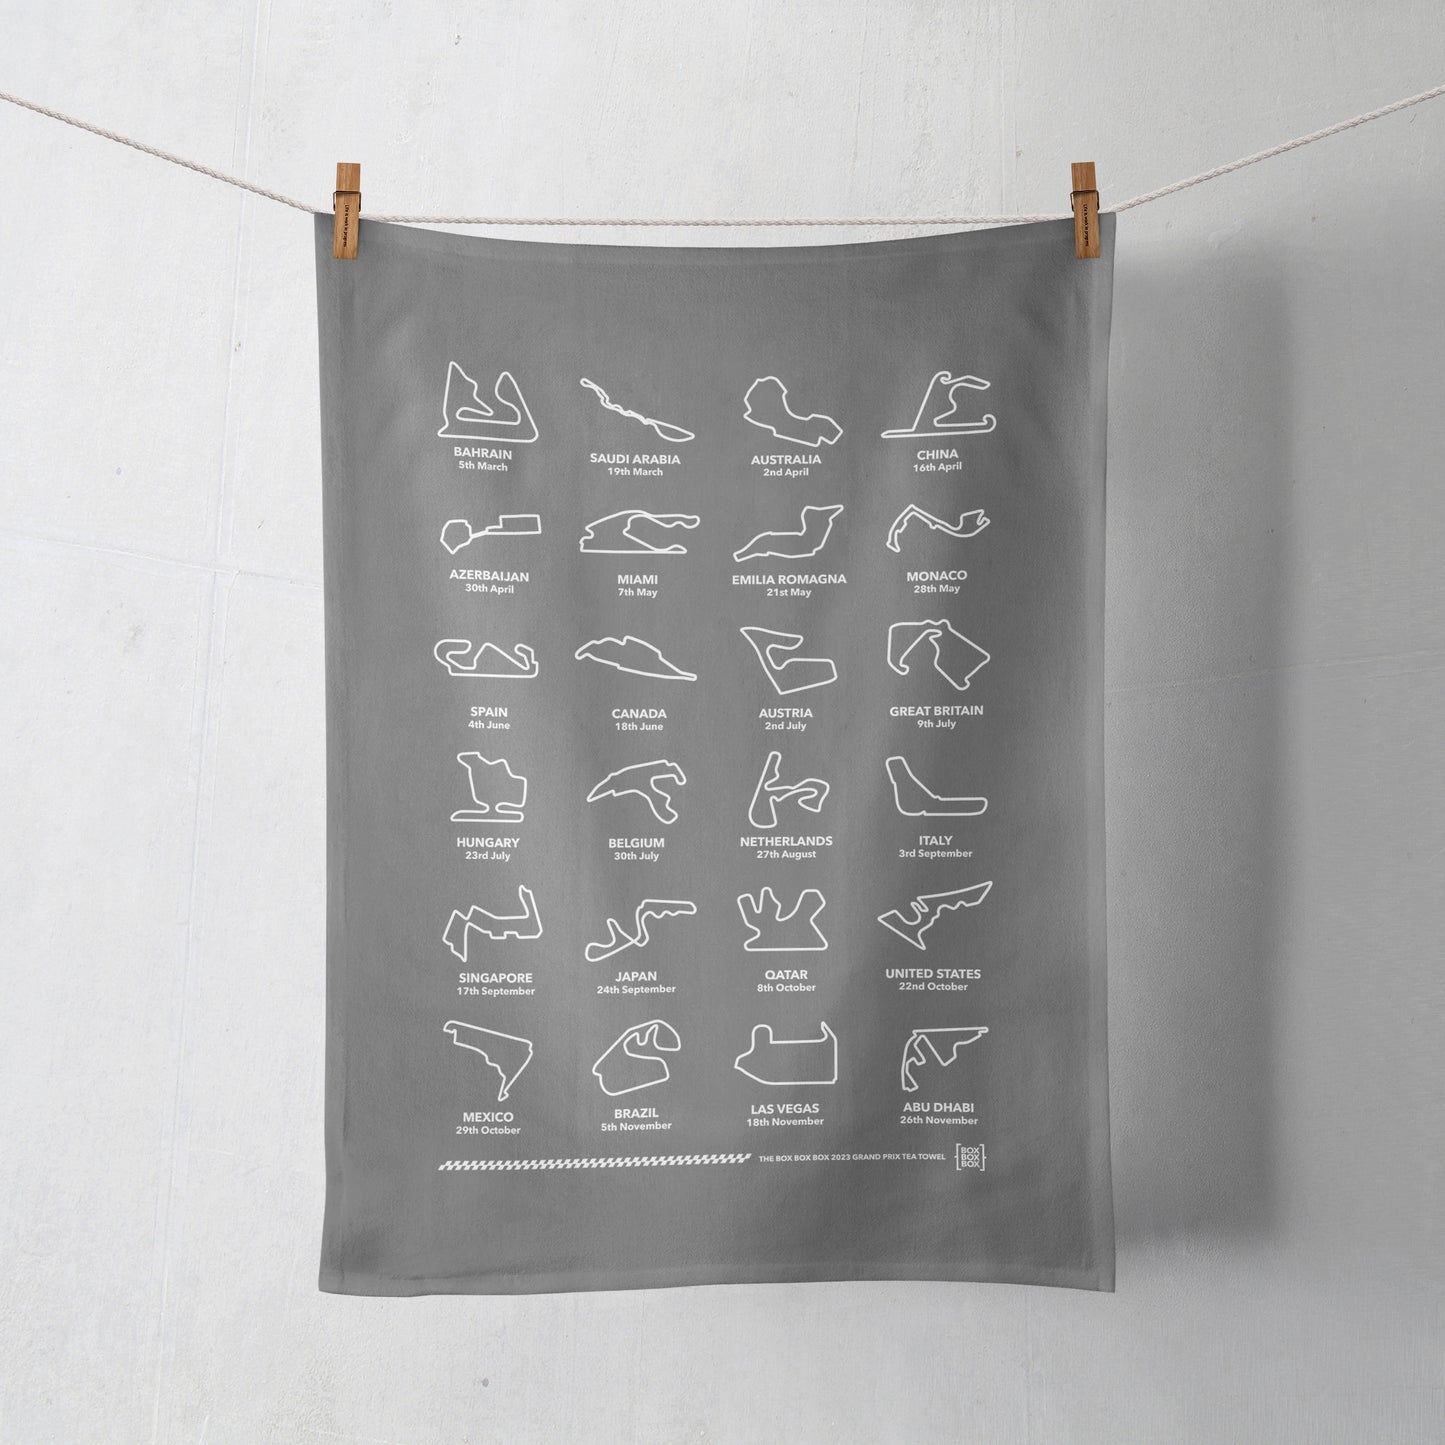 Life is work in progress
Life is work in progress
BAHRAIN
5th March
SAUDI ARABIA
19th March
AUSTRALIA
2nd April
CHINA
16th April
AZERBAIJAN
30th April
MIAMI
7th May
EMILIA ROMAGNA
21st May
MONACO
28th May
SPAIN
4th June
CANADA
18th June
AUSTRIA
2nd July
GREAT BRITAIN
9th July
HUNGARY
23rd July
BELGIUM
30th July
NETHERLANDS
27th August
ITALY
3rd September
SINGAPORE
17th September
JAPAN
24th September
QATAR
8th October
UNITED STATES
22nd October
MEXICO
29th October
BRAZIL
5th November
LAS VEGAS
18th November
ABU DHABI
26th November
THE BOX BOX BOX 2023 GRAND PRIX TEA TOWEL
BOX
BOX
BOX